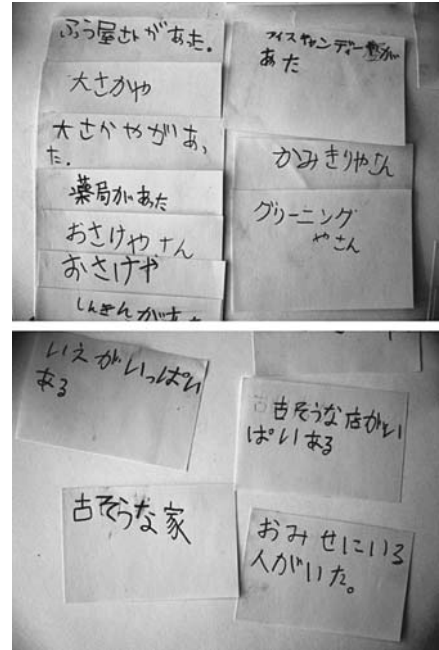 ふう屋さんがあった.
大さかや
大さかやがあっ
た.
薬局があった
おさけやさん
おさけや
しんきんがあった
アイスキャンディーやが
あった
かみきりやさん
グリーニング
やさん
いえがいっぱい
ある
古そうな店がいっ
ぱいある
古そうな家
おみせにいる
人がいた。